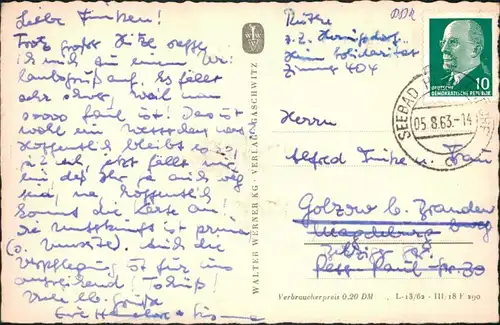 Liebe Finken!
Trotz großer Hitze raffe
ich mich zu einem Ur-
laubsgruß auf. Es fällt
sehr schwer, weil man
soooo faul ist! Das ist
wohl ein
Hoffentlich bleibt es
jetzt fällt mir
ein daß Ihr ja auch weg
seid, na hoffentlich
kommt die Karte an!
Die Unterkunft ist prima
(s. Umseite). Auch die
Verpflegung ist für uns
ausreichend
Viele lb. Grüße
Eure
WALTER WERNER KG · VERLAG · GASCHWITZ
DDR
z.Z. Heringsdorf
Heim Solidarität
Zimmer 404
DEUTSCHE
DEMOKRATISCHE REPUBLIK
10
SEEBAD
05.8.63.-14
c
Herrn
Alfred Finke u. Frau
Golzow b. Branden
burg
Magdeburg
Peter-Paul-Str. 30
Verbraucherpreis 0,20 DM
L- 15/62 - III 18 F 290